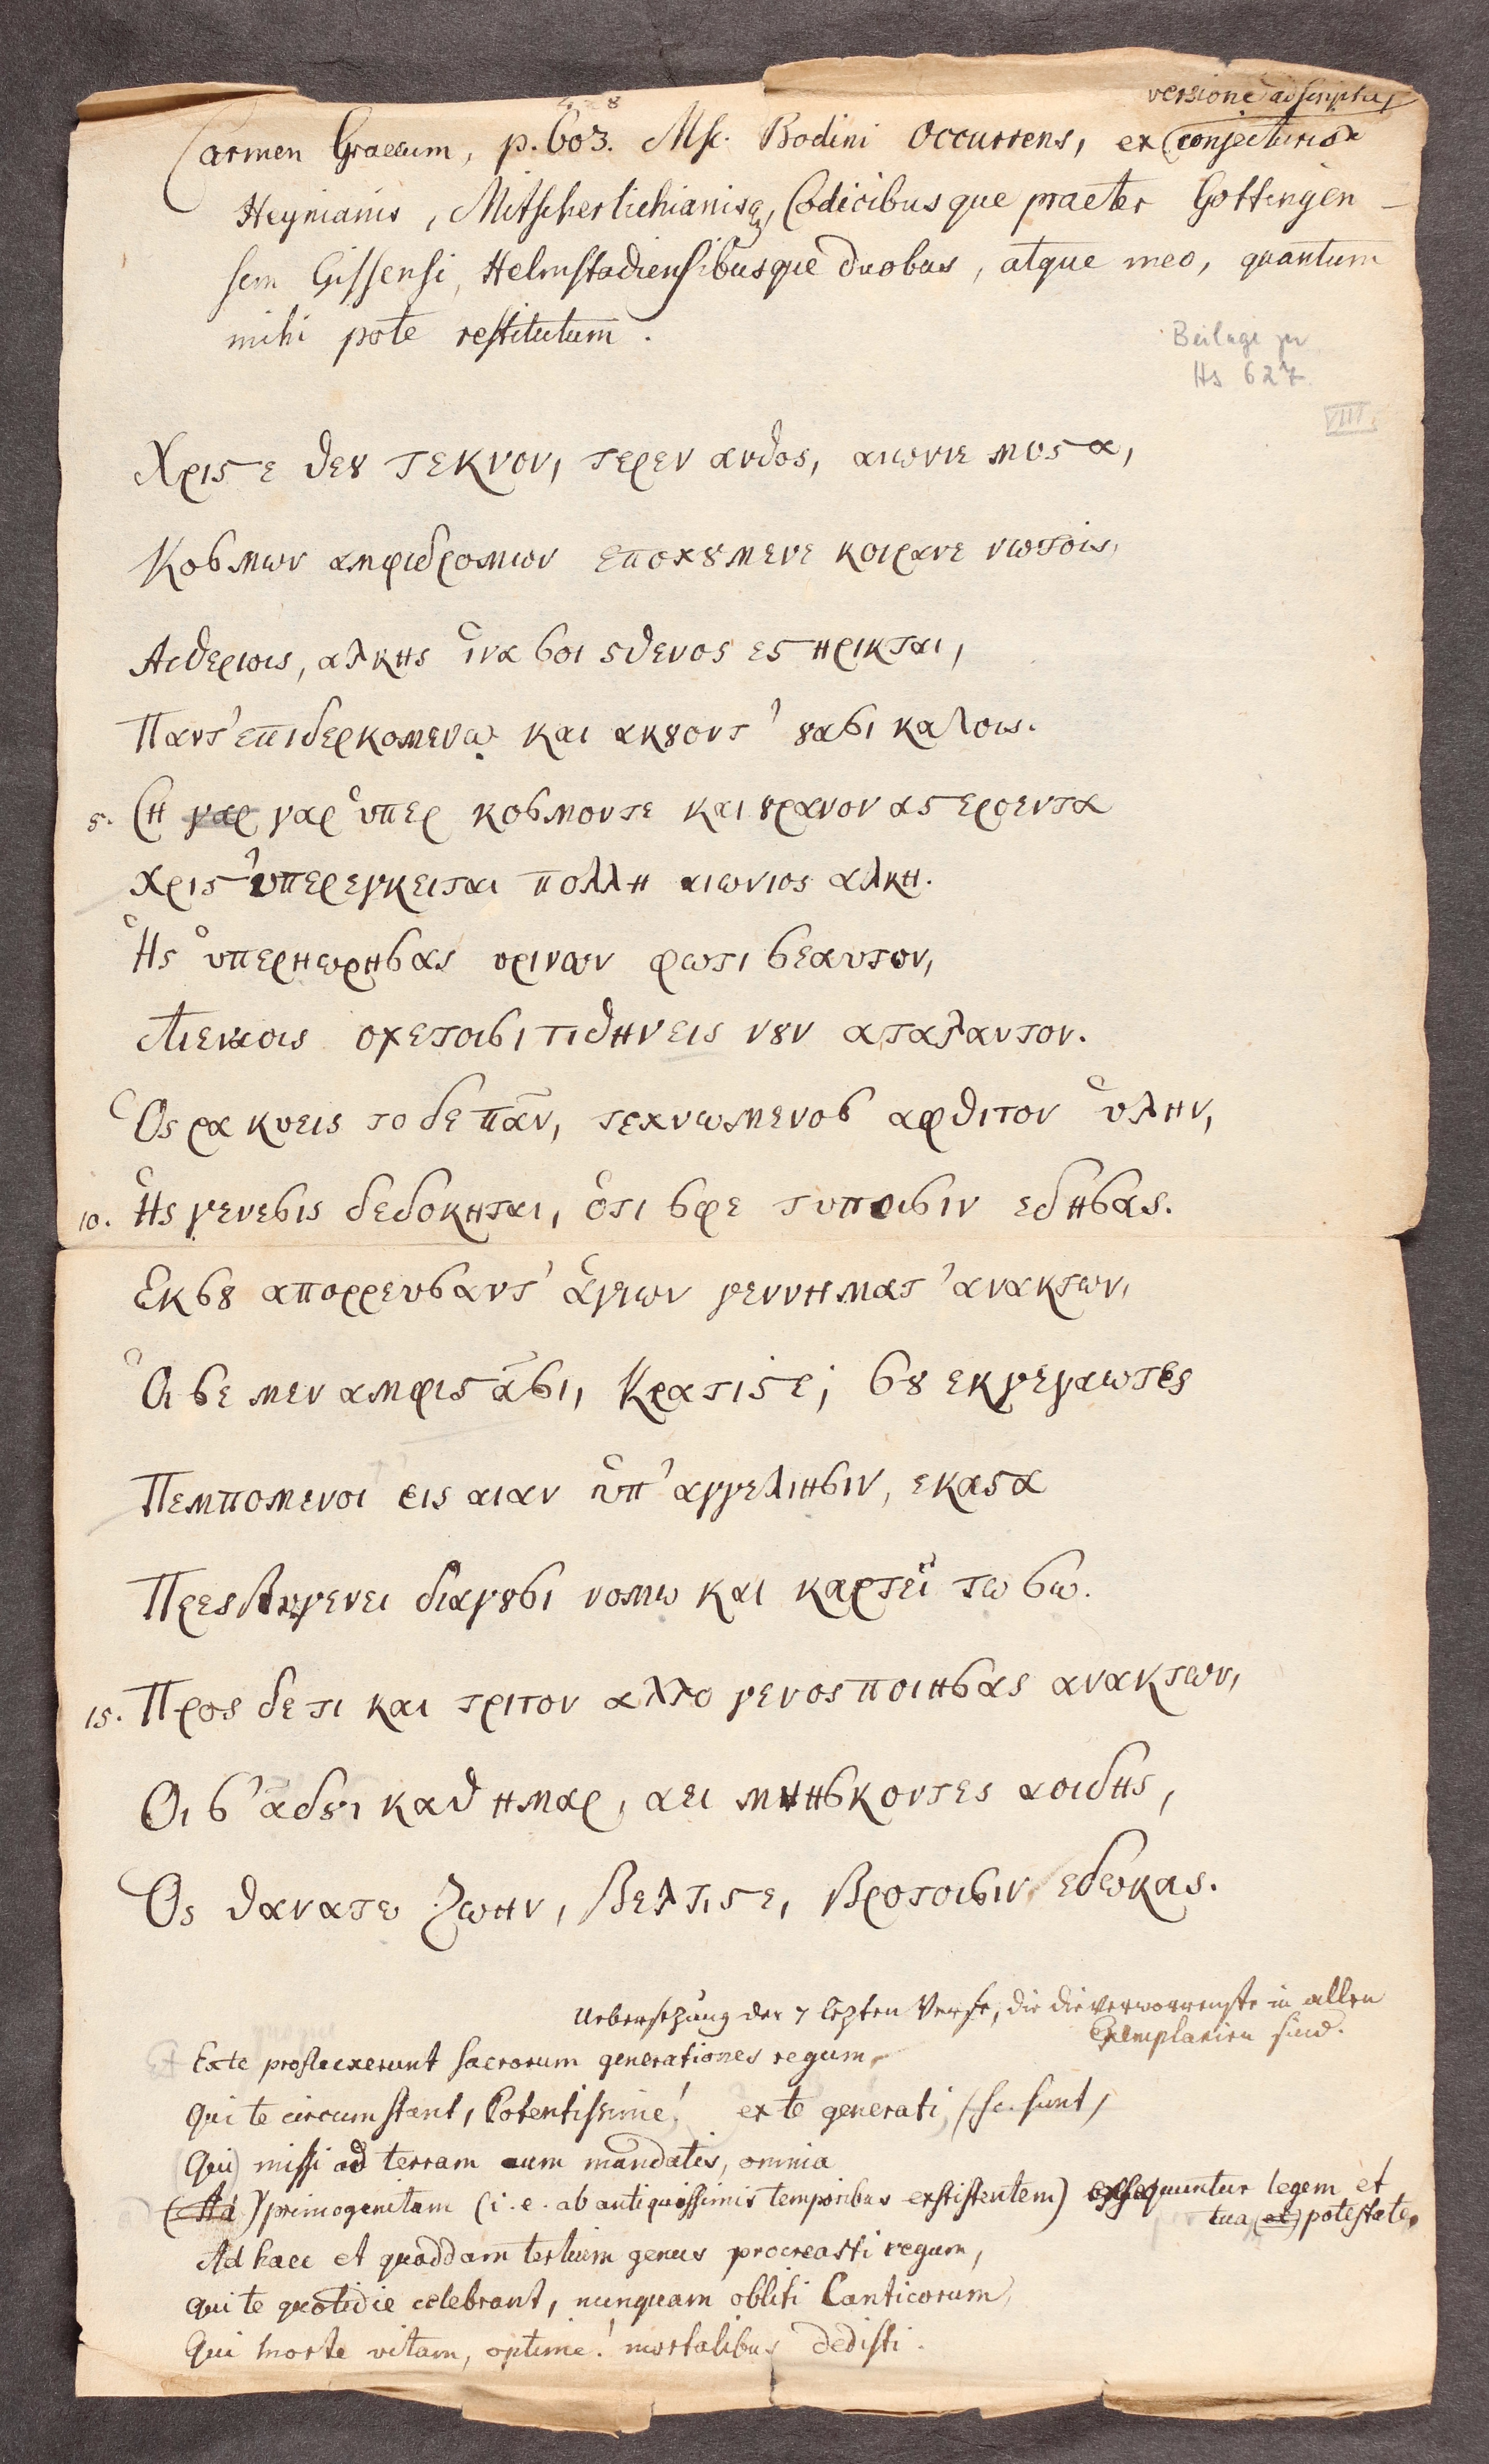 versione adscripta,
Carmen Graecum, p. 603. Msc. Bodini occurrens, ex conjecturis
Heynianis, Mitscherlichianisq, Codicibusque praeter Gottingen-
sem Gissensi, Helmstadiensibusque duobus, atque meo, quantum
mihi pote restitutum.
Beilage zu
Hs 627.
VIII.
Χριϛε θεȣ τεκνον, τερεν ανθος, αιωνιε μυϛα,
Κοσμων αμφιδρομων εποχȣμενε κοιρανε νωτοις,
Αιθεριοις, αλκης ἱνα σοι ϛθενος εϛηρικται,
Παντ' επιδερκομενῳ και ακȣοντ' ȣασι καλοις.
5. Ση γαρ γαρ ὑπερ κοσμοντε και ȣρανον αϛεροεντα
Χριϛ' ὑπερεγκειται πολλη αιωνιος αλκη.
Ἡς ὑπερηωρησας ορινων φωτι σεαυτον,
Αιεναοις οχετοισι τιθηνεις νȣν αταλαντον.
Ὁς ρα κυεις το δε πᾶν, τεχνωμενος αφθιτον ὑλην,
10. Ἡς γενεσις δεδοκηται, ὁτι σφε τυποισιν εδησας.
Εκ σȣ απορρευσαντ' ἁγιων γεννηματ' ανακτων,
Ὁι σε μεν αμφιϛᾶσι, Κρατιϛε, σȣ εκγεγαωτες
Πεμπομενοι εις αιαν ὑπ' αγγελιησιν, εκαϛα
Πρεσβυγενει διαγȣσι νομω και καρτεϊ τω σω.
15. Προς δε τι και τριτον αλλο γενος ποιησας ανακτων,
Οι σ' ᾳδȣσι καθ ημαρ, αει μνησκοντες αοιδης,
Ὁς θανατω ζωην, βελτιϛε, βροτοισιν εδωκας.
Uebersetzung der 7 lezten Verse, die die verworrenste in allen
Exemplarien sind.
Ex te profluxerunt sacrorum generationes regum,
Qui te circumstant, Potentissime! ex te generati, (sc. sunt,
(Qui) missi ad terram cum mandatis, omnia
(Ad) primogenitam (i. e. ab antiquissimis temporibus exstistentem) exsequuntur legem et
tua, (et) potestate.
Ad haec et quoddam tertium genus procreasti regum,
Qui te quotidie celebrant, nunquam obliti Canticorum,
Qui morte vitam, optime! mortalibus dedisti.